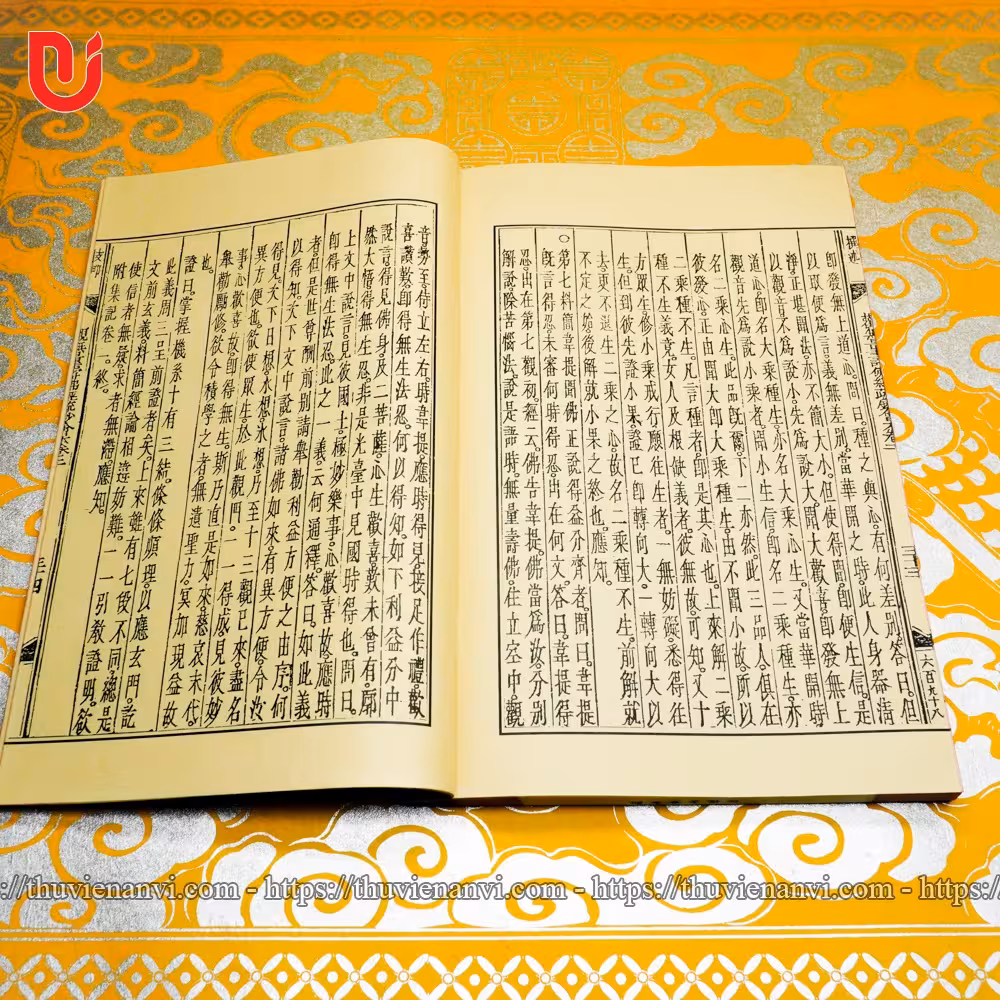 即發無上道心。問曰。種之與心。有何差別。答曰。但
以取便爲言。義無差別。當華開之時。此人身器清
淨。正堪聞法。亦不簡大小。但使得聞。即便生信。是
以觀音不爲說小。先爲說大。聞大歡喜。即發無上
道心。即名大乘種生。亦名大乘心生。又當華開時。
觀音先爲說小乘者。聞小生信。即名二乘種生。亦
名二乘心生。此品既爾。下二亦然。此三品人。俱在
彼發心。正由聞大即大乘種生。由不聞小故。所以
二乘種不生。凡言種者。即是其心也。上來解二乘
種不生義竟。女人及根缺義者。彼無故。可知。又十
方眾生。修小乘戒行。願往生者。一無妨礙。悉得往
生。但到彼先證小果。證已即轉向大。一轉向大以
去。更不退生二乘之心。故名二乘種不生。前解就
不定之始。後解就小果之終也。應知。
○第七料簡韋提聞佛正說得益分齊者。問曰。韋提
既言得忍。未審何時得忍。出在何文。答曰。韋提得
忍。出在第七觀初。經云。佛告韋提。佛當爲汝分別
解說除苦惱法。說是語時。無量壽佛。住立空中。觀
六百九十八
音勢至侍立左右。時韋提應時得見。接足作禮。歡
喜讚歎。即得無生法忍。何以得知。如下利益分中
說言。得見佛身及二菩薩。心生歡喜。歎未曾有。廓
然大悟。得無生忍。非是光臺中見國時得也。問曰。
上文中說言。見彼國土極妙樂事。心歡喜故。應時
即得無生法忍。此之一義。云何通釋。答曰。如此義
者。但是世尊酬前別請。舉勸利益方便之由序。何
以得知。次下文中說言。諸佛如來有異方便。令汝
得見。次下日想水想冰想。乃至十三觀已來。盡名
異方便也。欲使眾生於此觀門。一一得成。見彼妙
事。心歡喜故。即得無生。斯乃直是如來慈哀末代。
舉勸勵修。欲令積學之者無遺。聖力冥加。現益故
也。
證曰。掌握機糸十有三結。條條順理。以應玄門。訖
此義周。三呈前證者矣。上來雖有七段不同。總是
文前玄義。料簡經論相違妨難。一一引教證明。欲
使信者無疑。求者無滯。應知。
附 集記卷一。終。
https://thuvienanvi.com - https://thuvienanvi.com - https://thuvienanvi.com